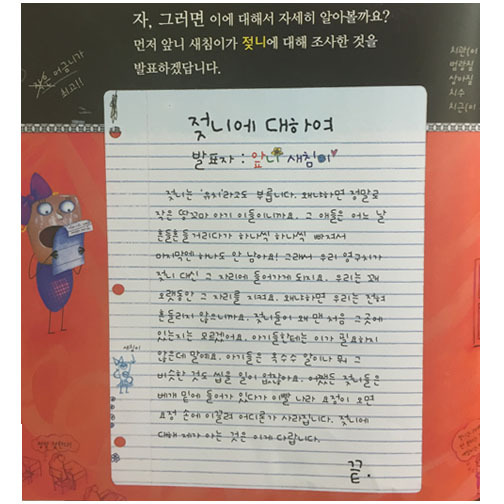 자, 그러면 이에 대해서 자세히 알아볼까요?
먼저 앞니 새침이가 젖니에 대해 조사한 것을
발표하겠답니다.
작은 어금니가
최고!!
치관(이
법랑질
상아질
치수
치근(이
젖니에 대하여
발표자 : 앞니 새침이
젖니는 '유치'라고도 부릅니다. 왜냐하면 정말로
작은 땅꼬마 아기 이들이니까요. 그 애들은 어느 날
흔들흔들거리다가 하나씩 하나씩 빠져서
마지막엔 하나도 안 남아요! 그래서 우리 영구치가
젖니 대신 그 자리에 들어가게 되지요. 우리는 꽤
오랫동안 그 자리를 지켜요. 왜냐하면 우리는 전혀
흔들리지 않으니까요. 젖니들이 왜 맨 처음 그곳에
있는지는 모르겠어요. 아기들한테는 이가 필요하지
않은데 말예요. 아기들은 옥수수 알이나 뭐 그
비슷한 것도 씹을 일이 없잖아요. 어쨌든 젖니들은
베개 밑에 들어가 있다가 이빨 나라 요정이 오면
요정 손에 이끌려 어디론가 사라집니다. 젖니에
대해 제가 아는 것은 이게 다랍니다.
끝.
새침이